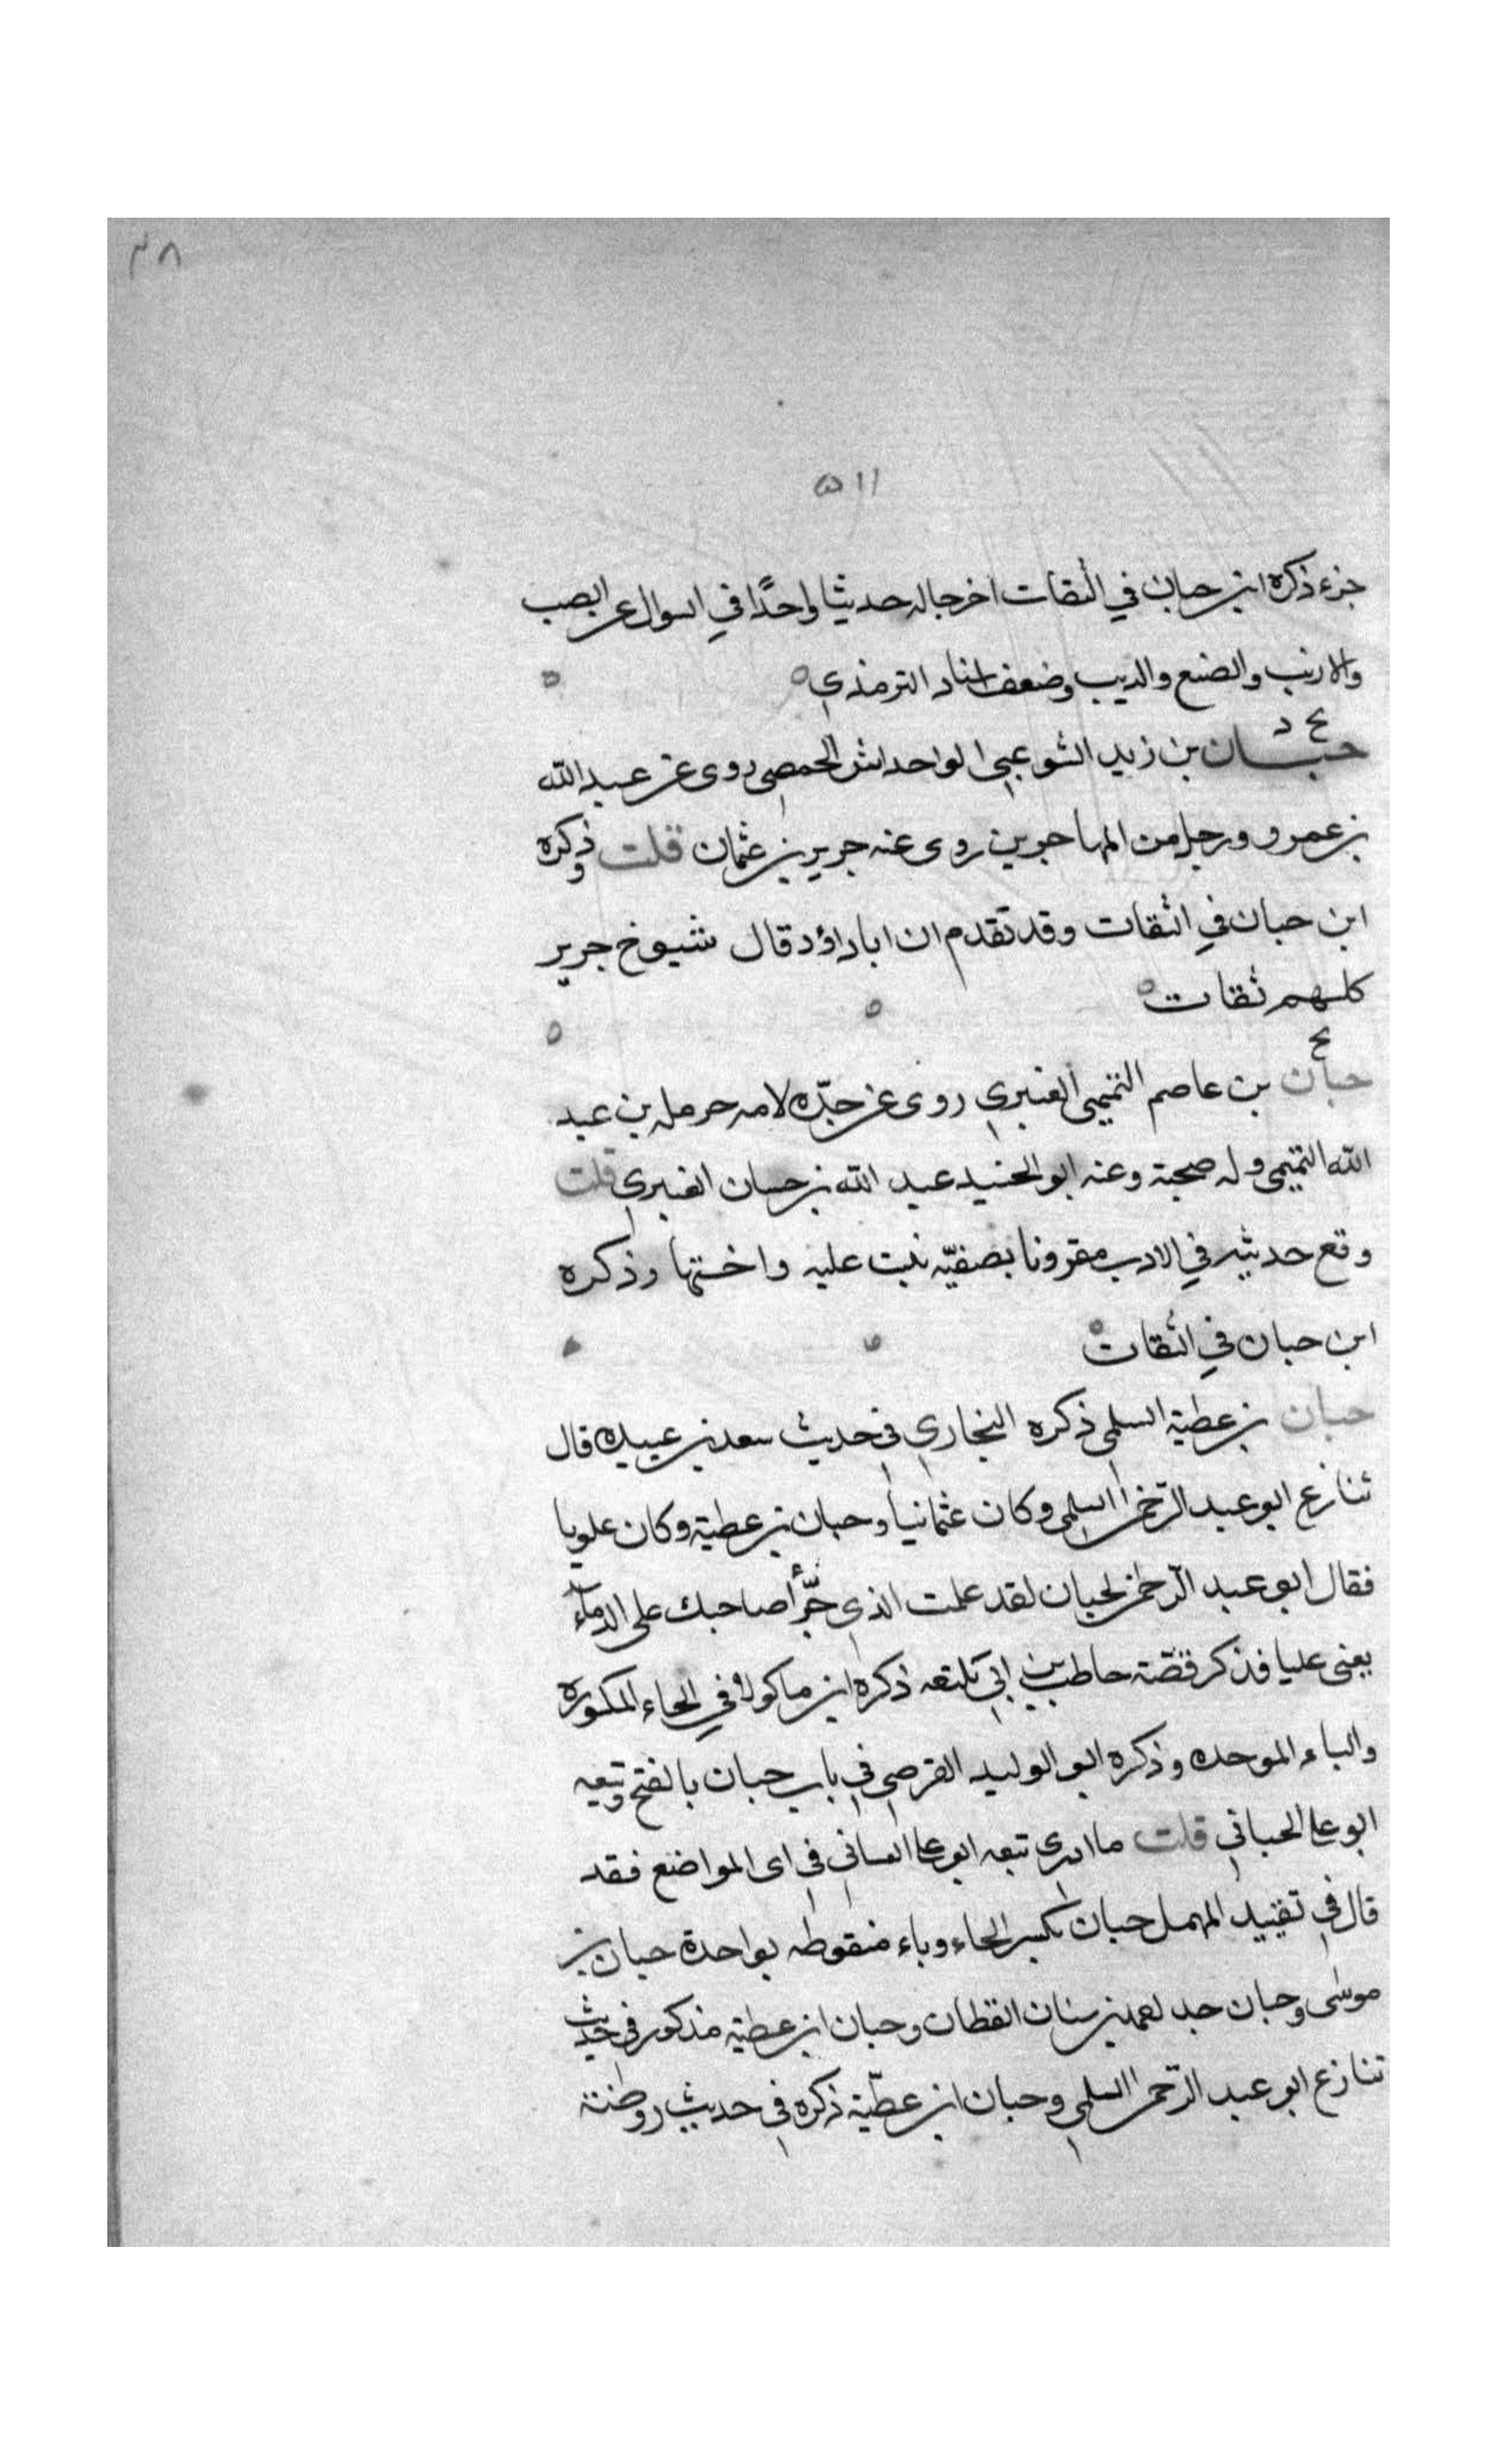 ٣٨
٥١١
جزء ذكره ابن حبان في الثقات اخرجا له حديثا واحدًا في السوال عن الضب
والارنب والضبع والذيب وضعف اسناد الترمذي
بخ د
حبان بن زيد الشرعبي ابو خداش الحمصي روى عن عبد الله
بن عمرو ورجل من المهاجرين روى عنه جرير بن عثمان قلت وذكره
ابن حبان في الثقات وقد تقدم ان ابا داؤد قال شيوخ جرير
كلهم ثقات
بخ
حبان بن عاصم التميمي العنبري روى عن جدّه لامه حرمله بن عبد
الله التميمي وله صحبة وعنه ابو الجنيد عبد الله بن حسان العنبري قلت
وقع حديثه في الادب مقرونا بصفيّه بنت عليه واختها وذكره
ابن حبان في الثقات
حبان بن عطية السلمي ذكره البخاري في حديث سعد بن عبيده قال
تنازع ابو عبد الرّحمن السلمي وكان عثمانيا وحبان بن عطية وكان علويا
فقال ابو عبد الرّحمن لحبان لقد علمت الذي جرّأ صاحبك على الدماء
يعنى عليا فذكر قصّة حاطب بن ابي بلتعه ذكره ابن ماكولا في الحاء المكسوره
والباء الموحده وذكره ابو الوليد الفرضي في باب حبان بالفتح وتبعه
ابو علي الجياني قلت ما ادري تبعه ابو علي الغساني في اى المواضع فقد
قال في تقييد المهمل حبان بكسر الحاء وباء منقوطه بواحدة حبان بن
موسى وحبان جد احمد بن سنان القطان وحبان ابن عطية مذكور في حديث
تنازع ابو عبد الرّحمن السلمي وحبان ابن عطيّة ذكره في حديث روضة